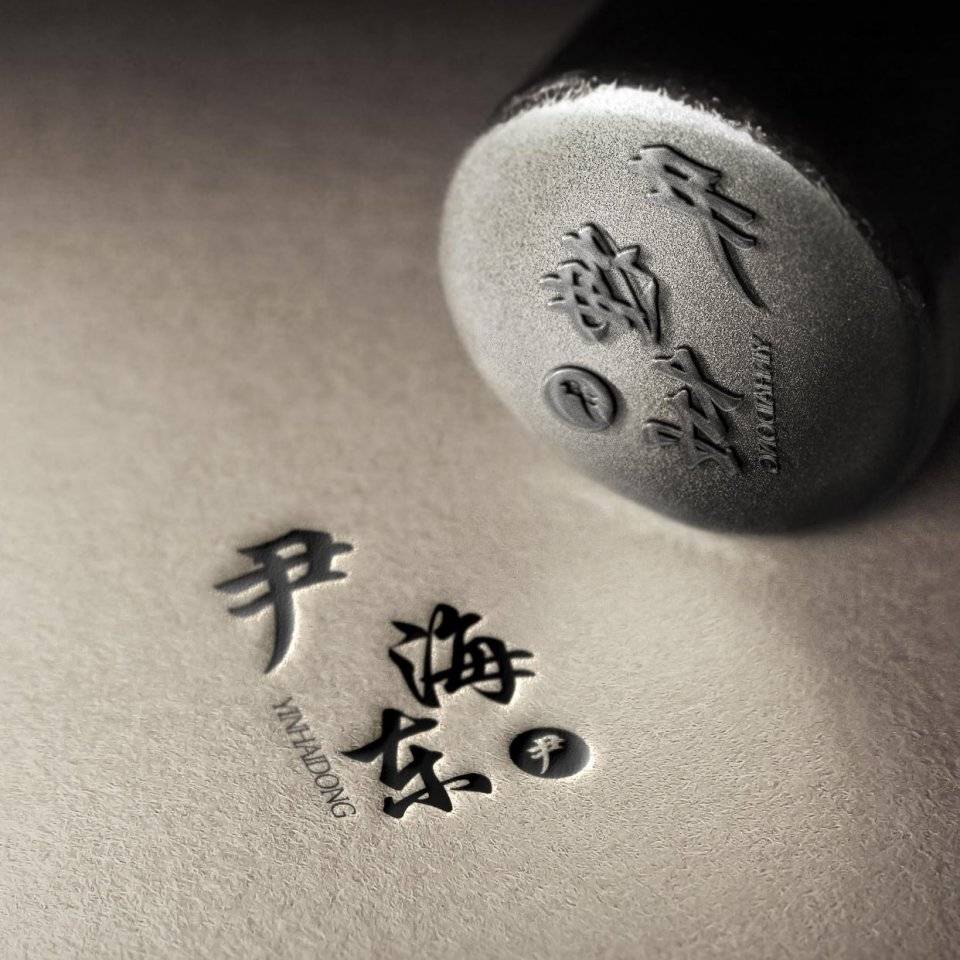 尹
海
东
尹
YINHAIDONG
尹
海
东
尹
YINHAIDONG